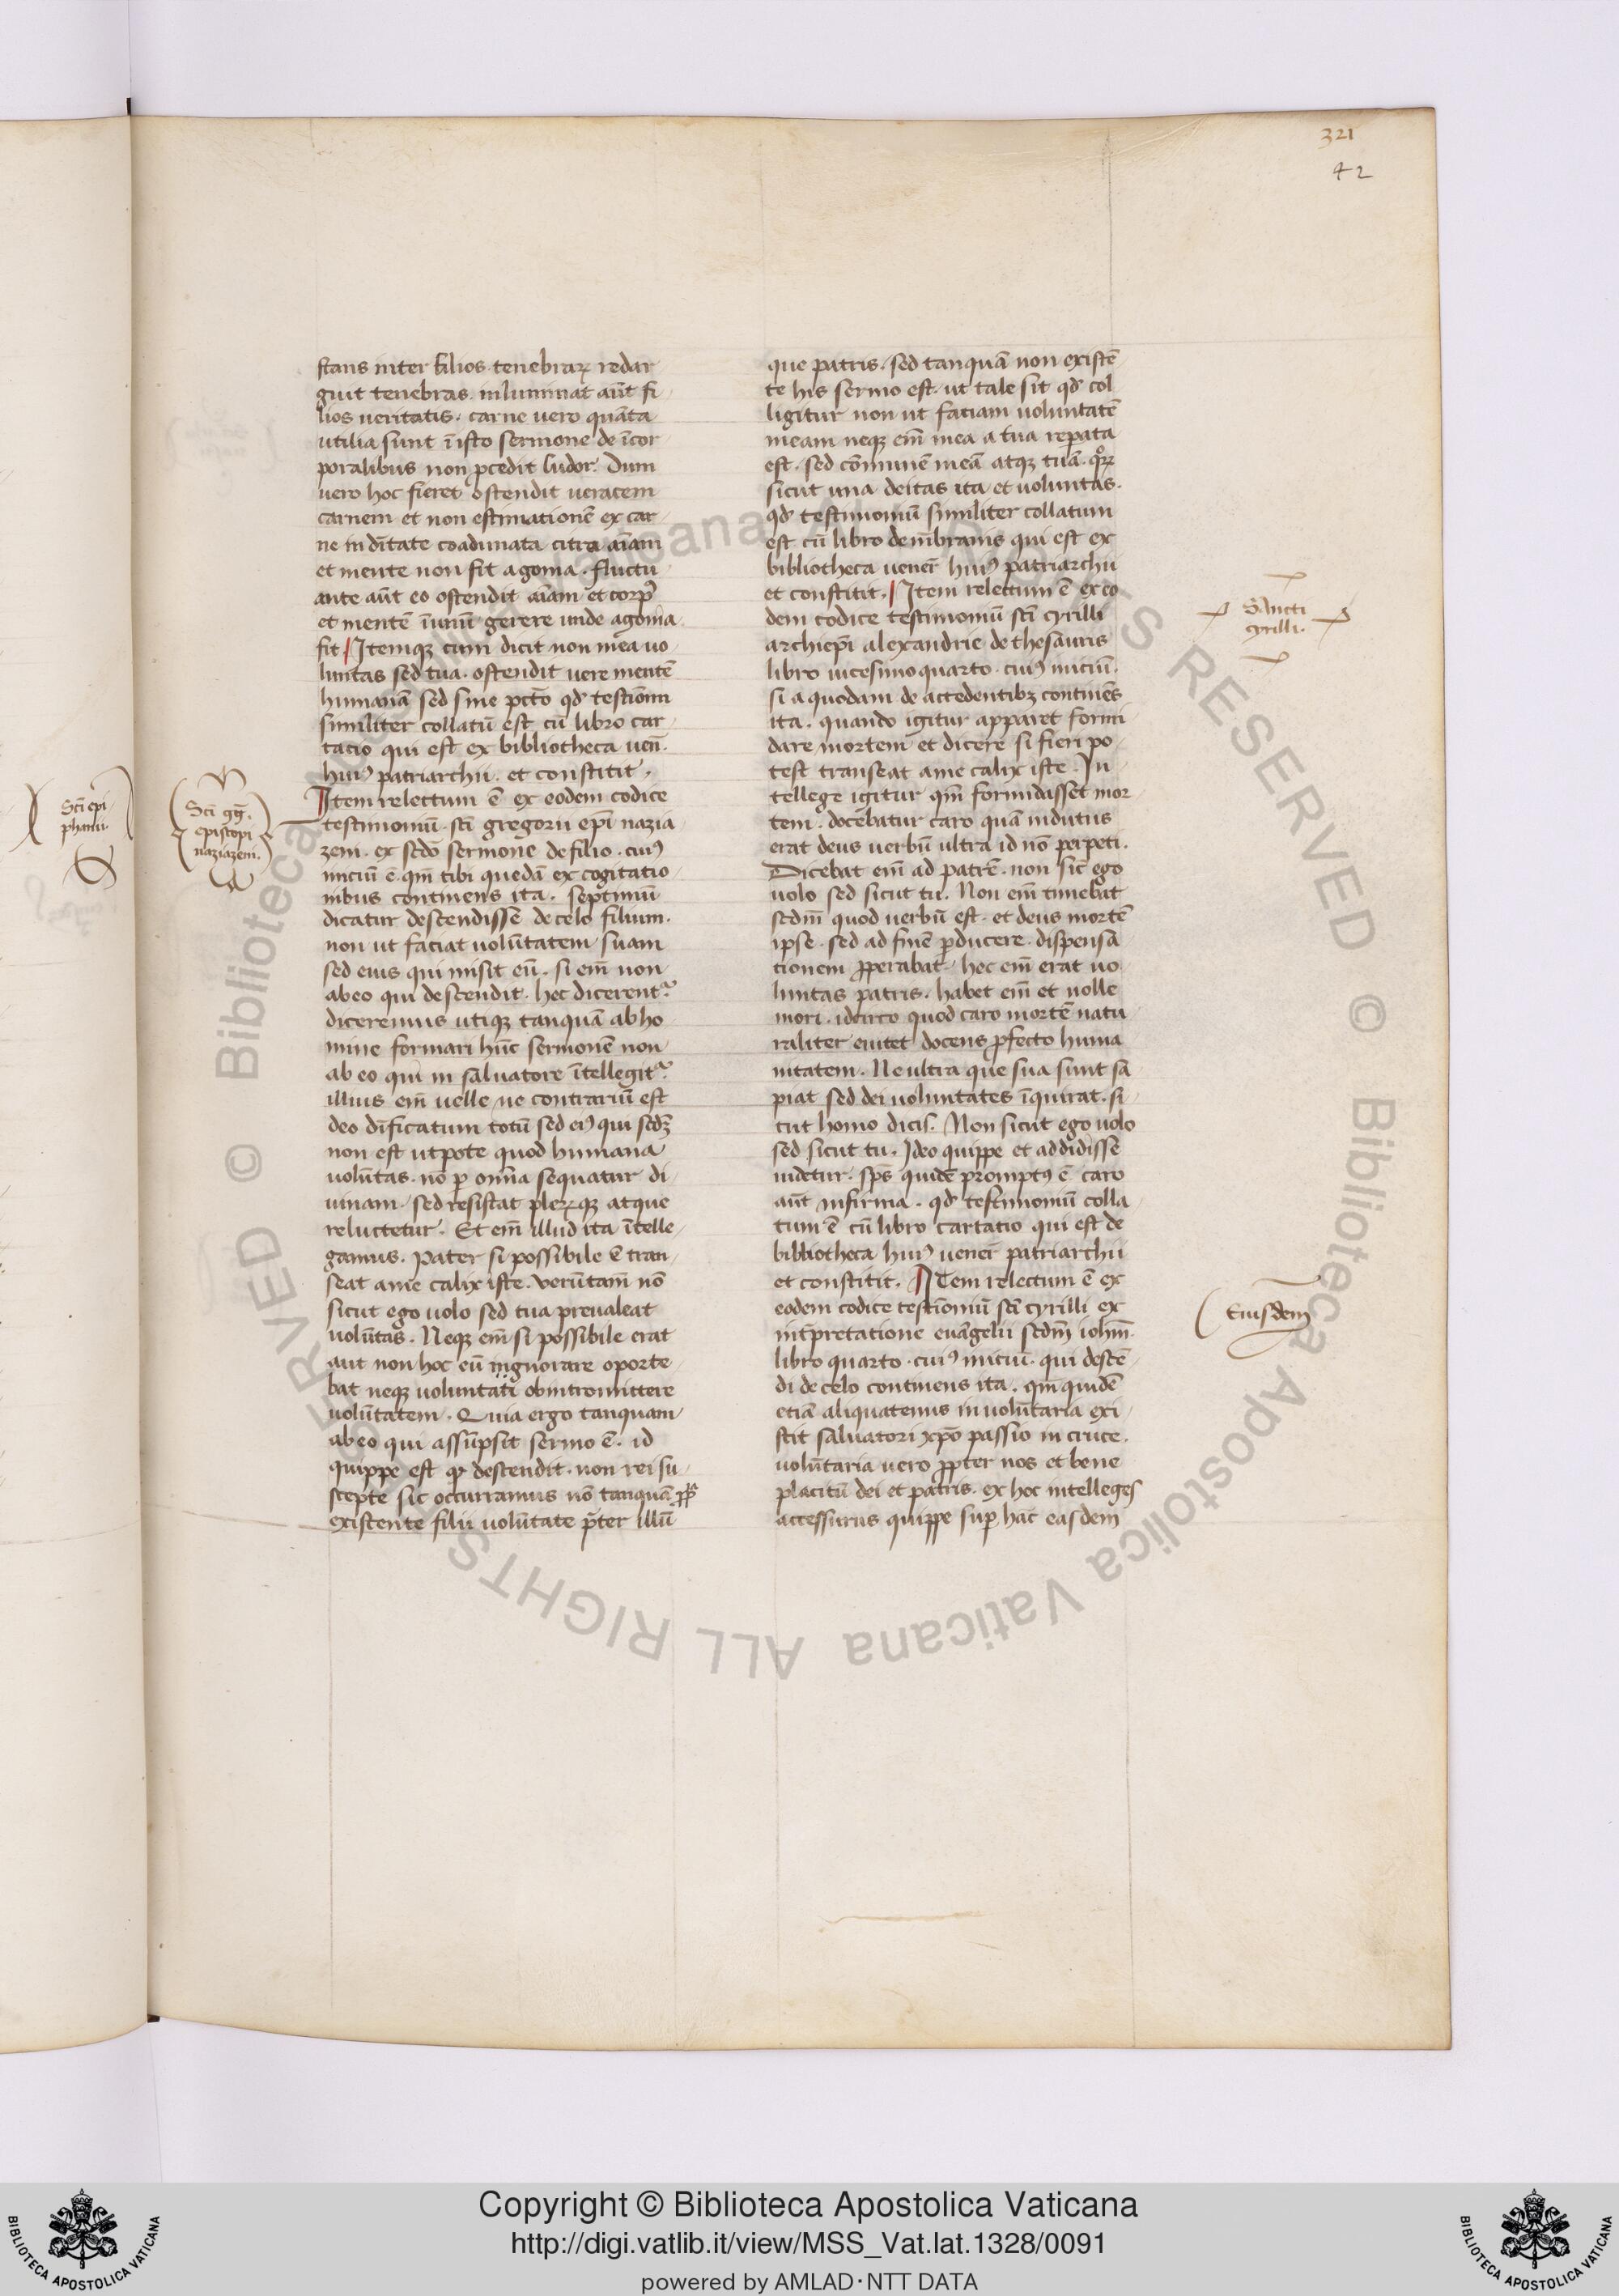 321
42
stans inter filios tenebrarꝝ redar
guit tenebras. inluminat aūt fi
lios ueritatis. carne uero quāta
utilia sunt ī isto sermone de īcor
poralibus non p̱cedit sudor. Dum
uero hoc fieret ostendit ueracem
carnem et non estimationē ex car
ne in dītate coadunata citra aīam
et mente non fit agonia. fluctu
ante aūt eo ostendit aīam et corpꝰ
et mentē ī unū gerere unde agonia
fit Itemqꝫ cum dicit non mea uo
luntas sed tua. ostendit uere mentē
humanā sed sine pctō qđ testīoniū
similiter collatū est cū libro car
tacio qui est ex bibliotheca uen̄.
huiꝰ patriarchii. et constitit.
Item relectum ē ex eodem codice
testimoniū. scī gregorii ep̄i nazia
zeni. ex scd̄o sermone de filio. cuiꝰ
iniciū ē. qm̄ tibi quedā ex cogitatio
nibus continens ita. septimū
dicatur descendisse de celo filium.
non ut faciat uolūtatem suam
sed eius qui misit eū. si em̄ non
ab eo qui descendit. hec dicerent᷑
diceremus utiqꝫ tanquā ab ho
mine formari hūc sermonē non
ab eo qui in saluatore ītellegit᷑
illius em̄ uelle ne contrariū est
deo dīficatum totū sed eiꝰ qui scd̄ꝫ
non est utpote quod humana
uolūtas. nō ꝑ om̄a sequatur di
uinam. sed resistat plerꝝqꝫ atque
reluctetur. Et em̄ illud ita ītelle
gamus. Pater si possibile ē tran
seat a me calix iste. uerūtam̄ nō
sicut ego uolo sed tua preualeat
uolūtas. Neqꝫ em̄ si possibile erat
aut non hoc eū ingnorare oporte
bat neqꝫ uoluntati obintromittere
uolūtatem. Quia ergo tanquam
ab eo qui assūpsit sermo ē. id
quippe est qđ descendit. non rei su
scepte sic occurramus nō tanquā ꝓpͣ
existente filii uolūtate p̄ter illū
que patris. sed tanquā non existē
te his sermo est. ut tale sit qđ col
ligitur non ut faciam uoluntatē
meam neqꝫ em̄ mea a tua reꝑata
est. sed cōmunē meā atqꝫ tuā. qͦꝝ
sicut una deitas ita et uoluntas.
qđ testimoniū similiter collatum
est cū libro demb̄ranis qui est ex
bibliotheca uener̄ huiꝰ patriarchii
et constitit. Item relectum ē ex eo
dem codice testimoniū scī cyrilli
archiep̄i alexandrie de thesauris
libro uicesimo quarto. cuiꝰ iniciū.
si a quodam de accedentibꝫ continēs
ita. quando igitur apparet formi
dare mortem et dicere si fieri po
test transeat a me calix iste. In
tellege igitur qm̄ formidasset mor
tem. docebatur caro quā indutus
erat deus uerbū ultra id nō perpeti.
Dicebat em̄ ad patrē. non sic̄ ego
uolo sed sicut tu. Non em̄ timebat
scdm̄ quod uerbū est. et deus mortē
ipse. sed ad finē ꝑducere. dispensa
tionem ꝓperabat. hec em̄ erat uo
luntas patris. habet em̄ et nolle
mori. idcirco quod caro mortē natu
raliter euitet docens ꝓfecto huma
nitatem. Ne ultra que sua sunt sa
piat sed dei uoluntates īquirat. si
cut homo dicis. Non sicut ego uolo
sed sicut tu. Ideo quippe et addidisse
uidetur. sp̄s quidē promptꝰ ē caro
aūt infirma. qđ testimoniū colla
tum ē cū libro cartatio qui est de
bibliotheca huiꝰ uener̄ patriarchii
et constitit. Item relectum ē ex
eodem codice testīoniū scī cyrilli ex
int̄pretatione euāgelii scdm̄ ioh̄m.
libro quarto. cuiꝰ iniciū. qui descē
di de celo continens ita. qm̄ quidē
etiā aliquatenus in uolūtaria exi
stit saluatori xp̄o passio in cruce.
uolūtaria uero ꝓpter nos et bene
placitū dei et patris. ex hoc intelleges
accessurus quippe suꝑ hac̄ easdem
Scī epi
phanii.
Scī gḡ.
episcopi
naziazeni.
Sancti
cyrilli.
Eiusdem
© Biblioteca Apostolica Vaticana ALL RIGHTS RESERVED © Biblioteca Apostolica Vaticana ALL RIGHTS RESERVED
Copyright © Biblioteca Apostolica Vaticana
http://digi.vatlib.it/view/MSS_Vat.lat.1328/0091
powered by AMLAD·NTT DATA
BIBLIOTECA APOSTOLICA VATICANA
BIBLIOTECA APOSTOLICA VATICANA